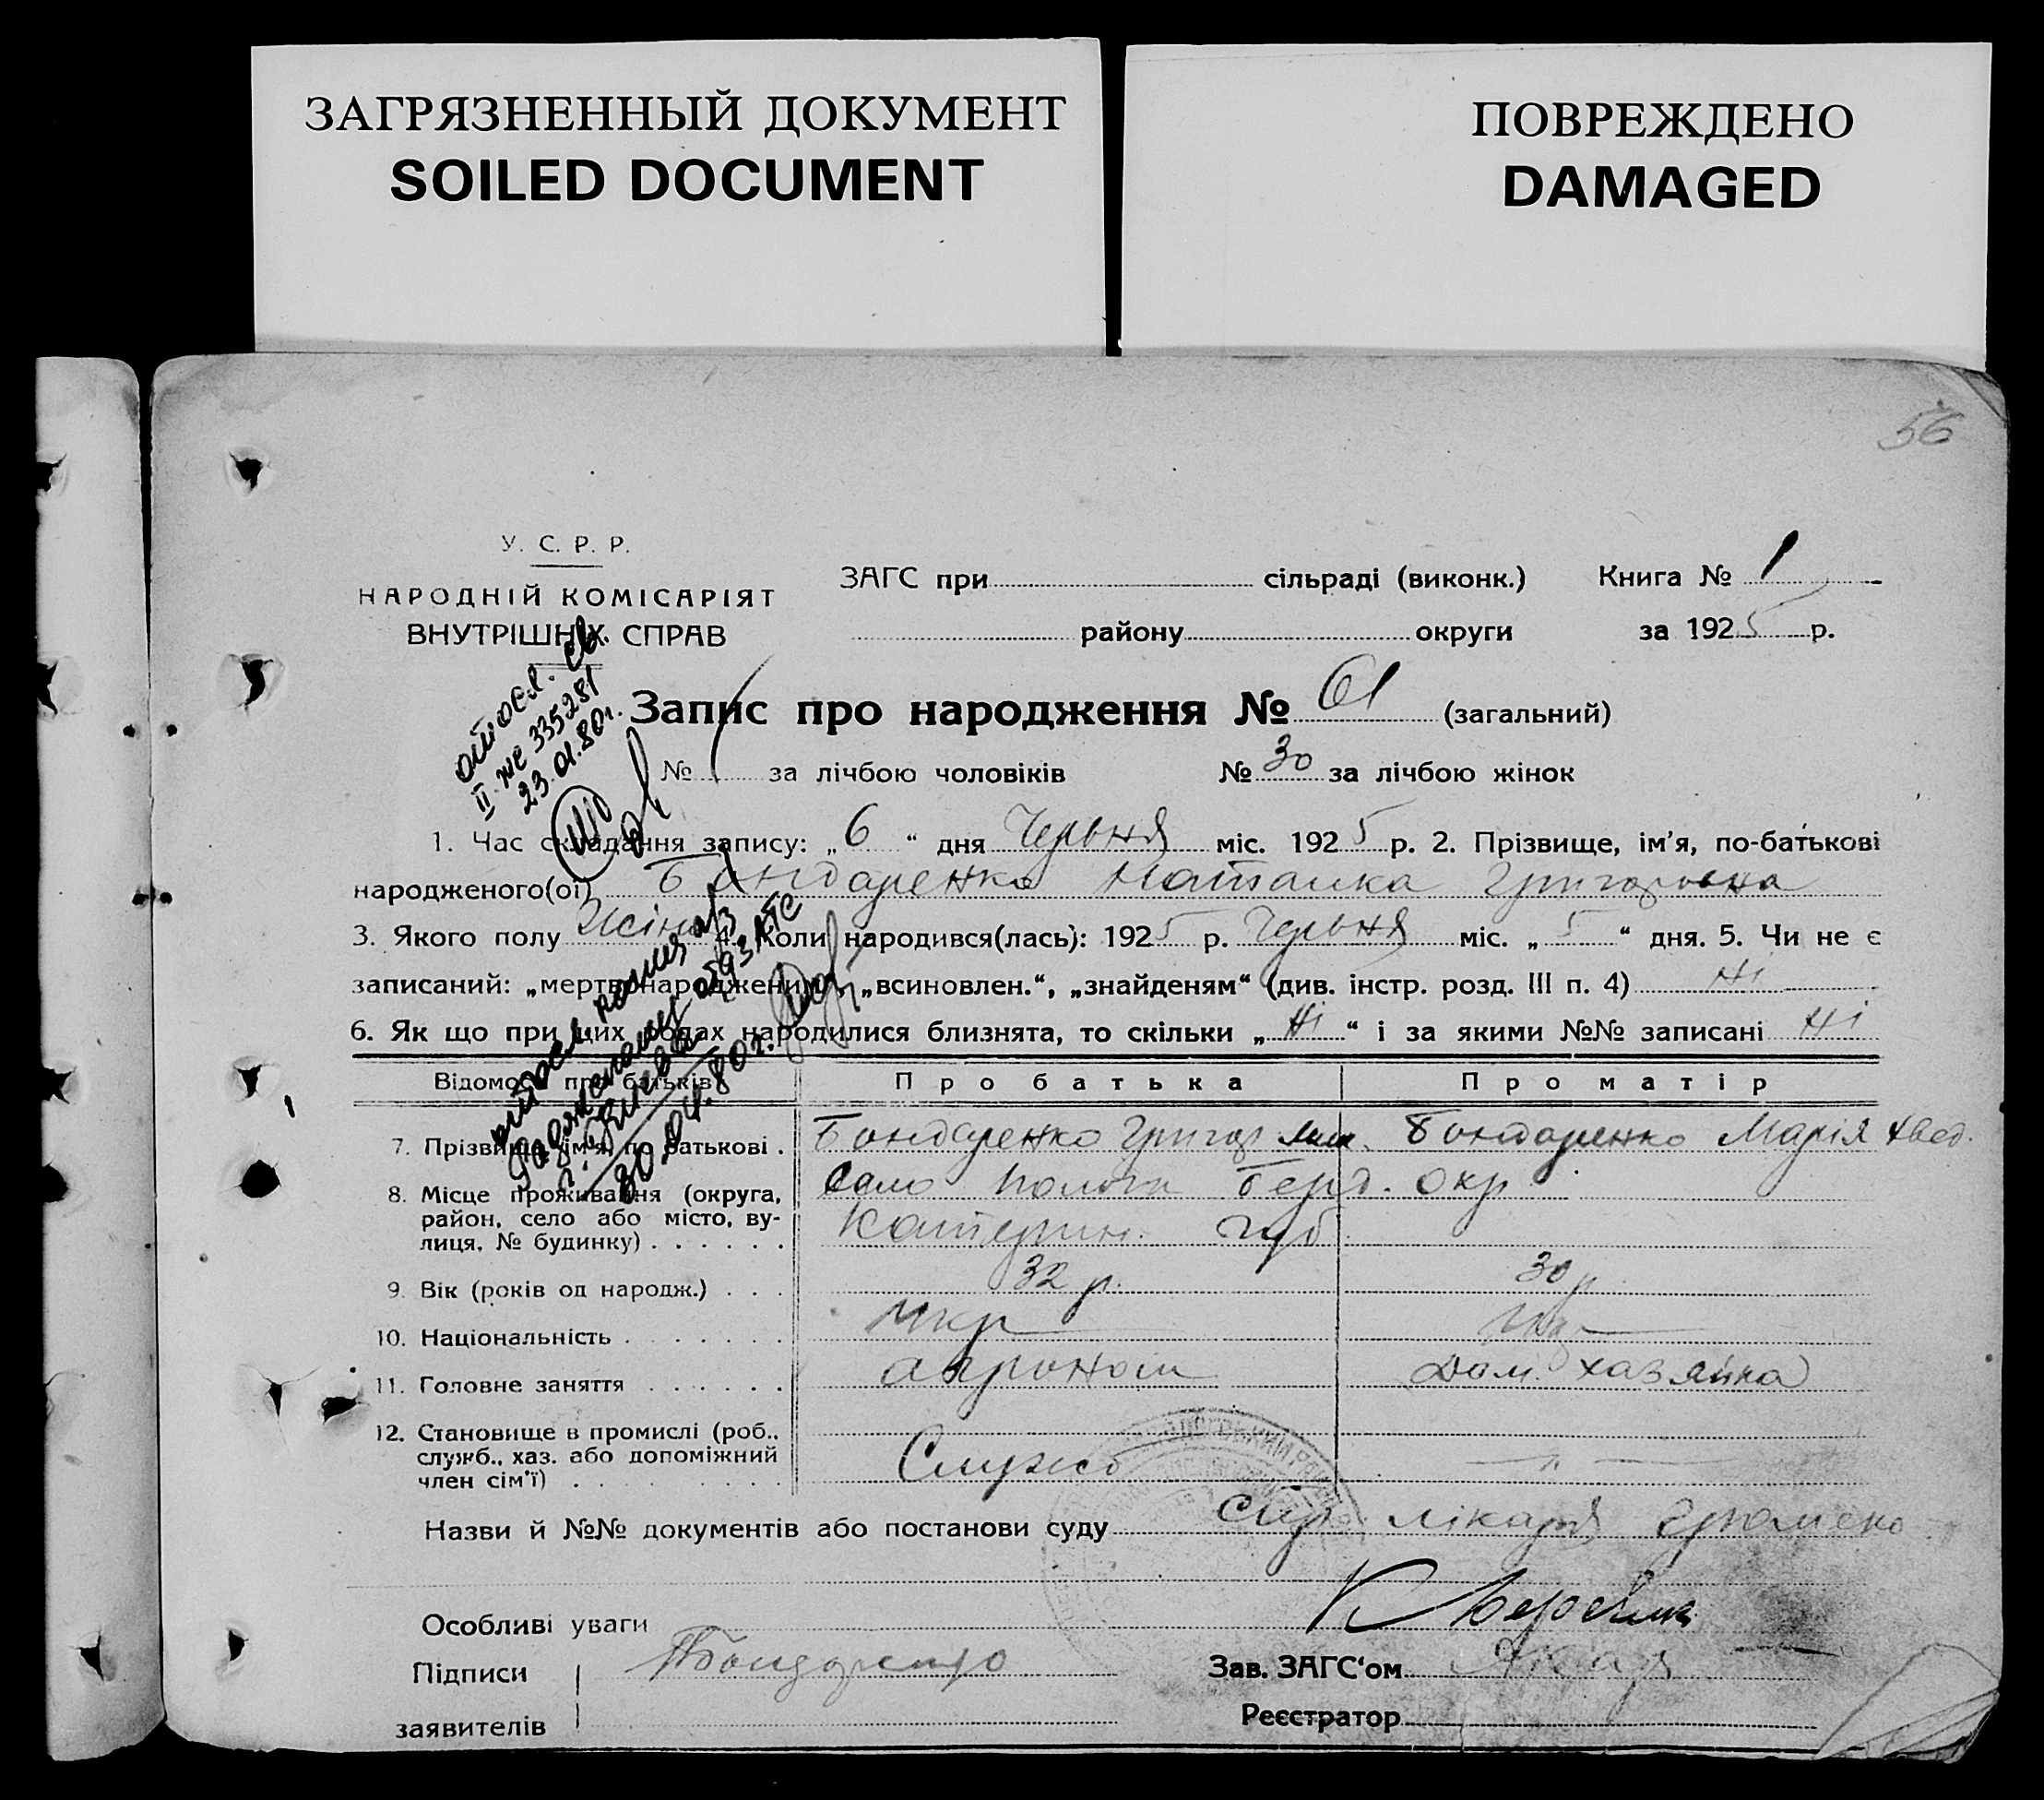 ЗАГРЯЗНЕННЫЙ ДОКУМЕНТ
SOILED DOCUMENT
ПОВРЕЖДЕНО
DAMAGED
56
У. С. Р. Р.
НАРОДНІЙ КОМІСАРІЯТ
ВНУТРІШНІХ СПРАВ
ЗАГС при сільраді (виконк.) Книга № 1
району округи за 1925 р.
II ЖС 335281
23.01.80г.
Запис про народження № 61 (загальний)
№ за лічбою чоловіків № 30 за лічбою жінок
1. Час складання запису: „6“ дня Червня міс. 1925 р. 2. Прізвище, ім'я, по-батькові
народженого(ої) Бондаренко Наталка Григоровна
3. Якого полу Жіноч 4. Коли народився(лась): 1925 р. Червня міс. „5“ дня. 5. Чи не є
записаний: „мертвонародженим“, „всиновлен.“, „знайденям“ (див. інстр. розд. III п. 4) Ні
6. Як що при цих родах народилися близнята, то скільки „Ні“ і за якими №№ записані Ні
30.04.80г.
Відомості про батьків Про батька Про матір
7. Прізвище, ім'я, по батькові . Бондаренко Григор Бондаренко Марія Хвед.
8. Місце проживання (округа, Село Пологи Берд. окр
район, село або місто, ву- Катерин. губ
лиця, № будинку) . . . . . .
9. Вік (років од народж.) . . . 32 р. 30 р
10. Національність . . . . . . . Укр Укр
11. Головне заняття . . . . . . агроном Дом. хазяйка
12. Становище в промислі (роб.,
служб., хаз. або допоміжний Служб — " —
член сім'ї) . . . . . . . . .
Назви й №№ документів або постанови суду лікаря
Особливі уваги
Підписи Бондаренко Зав. ЗАГС'ом
заявителів Реєстратор